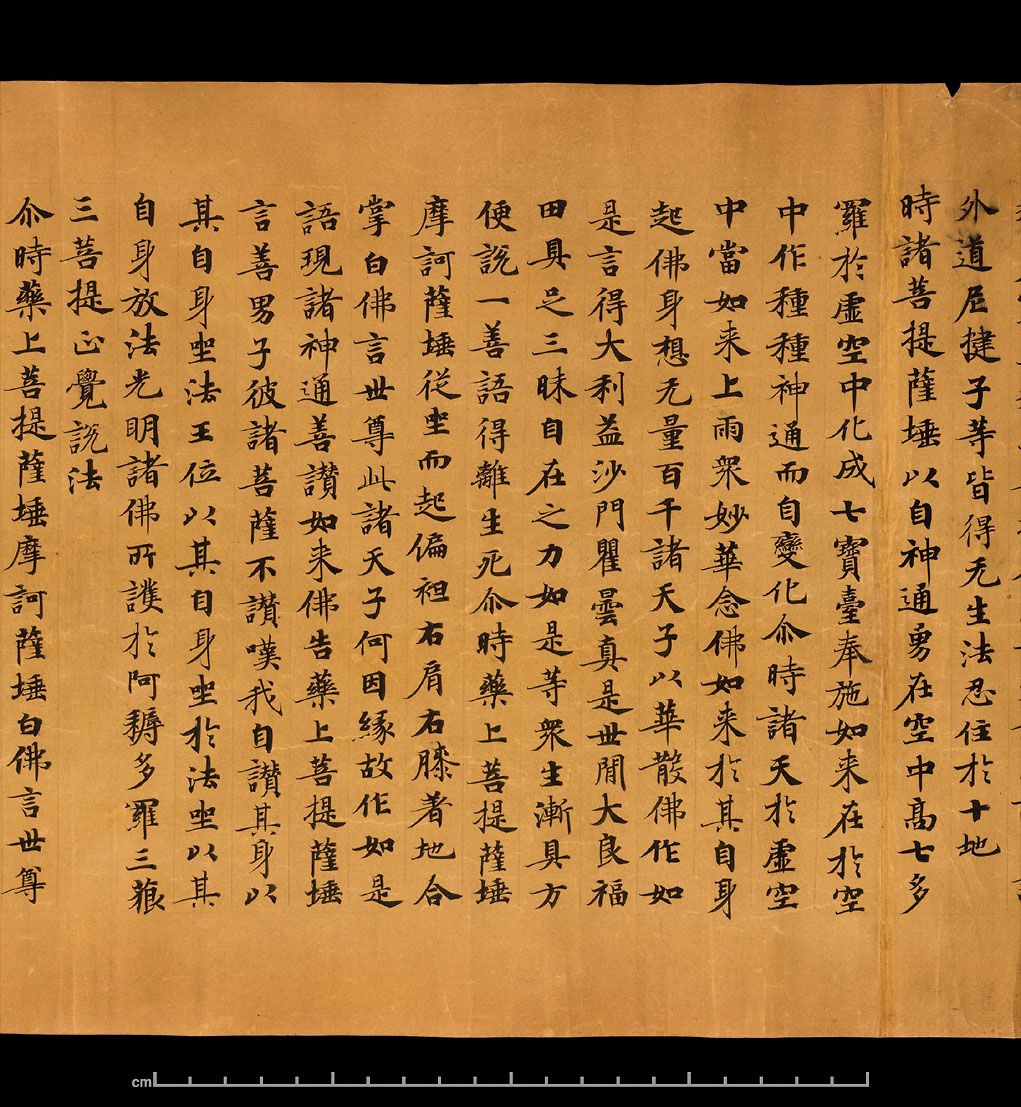 外道尼揵子等皆得无生法忍住於十地
時諸菩提薩埵以自神通勇在空中高七多
羅於虛空中化成七寶臺奉施如来在於空
中作種種神通而自變化尒時諸天於虛空
中當如来上雨衆妙華念佛如来於其自身
起佛身想无量百千諸天子以華散佛作如
是言得大利益沙門瞿曇真是世間大良福
田具足三昧自在之力如是等衆生漸具方
便說一善語得離生死尒時藥上菩提薩埵
摩訶薩埵從坐而起偏袒右肩右膝著地合
掌白佛言世尊此諸天子何因緣故作如是
語現諸神通善讃如来佛告藥上菩提薩埵
言善男子彼諸菩薩不讃嘆我自讃其身以
其自身坐法王位以其自身坐於法坐以其
自身放法光明諸佛所護於阿耨多羅三藐
三菩提正覺說法
尒時藥上菩提薩埵摩訶薩埵白佛言世尊